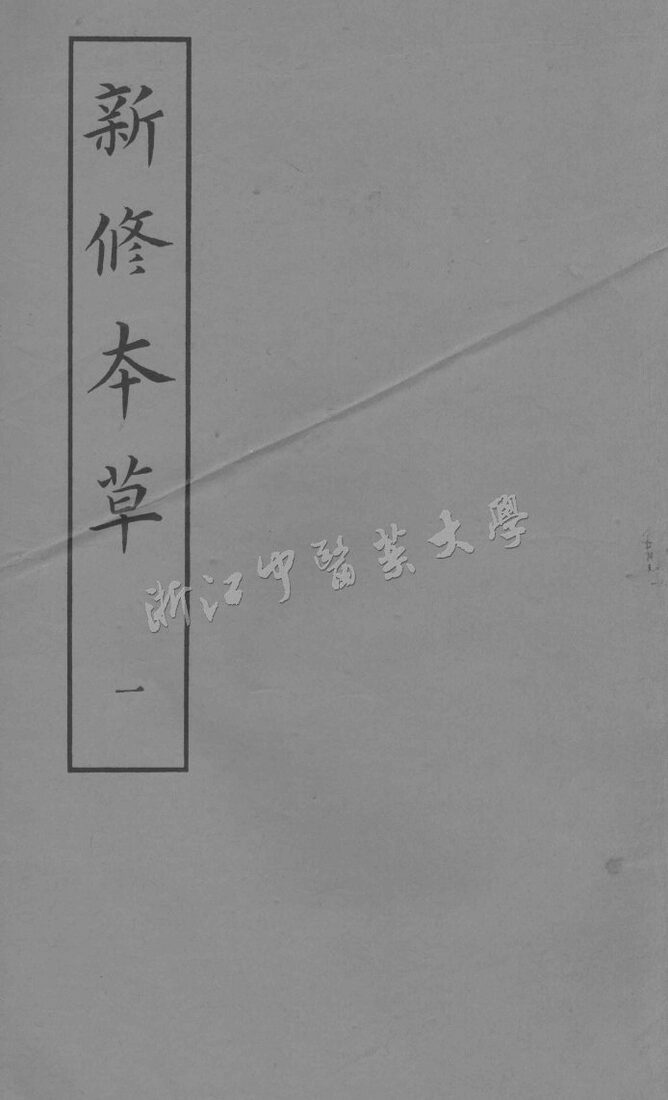 新修本草
一
浙江中醫藥大學